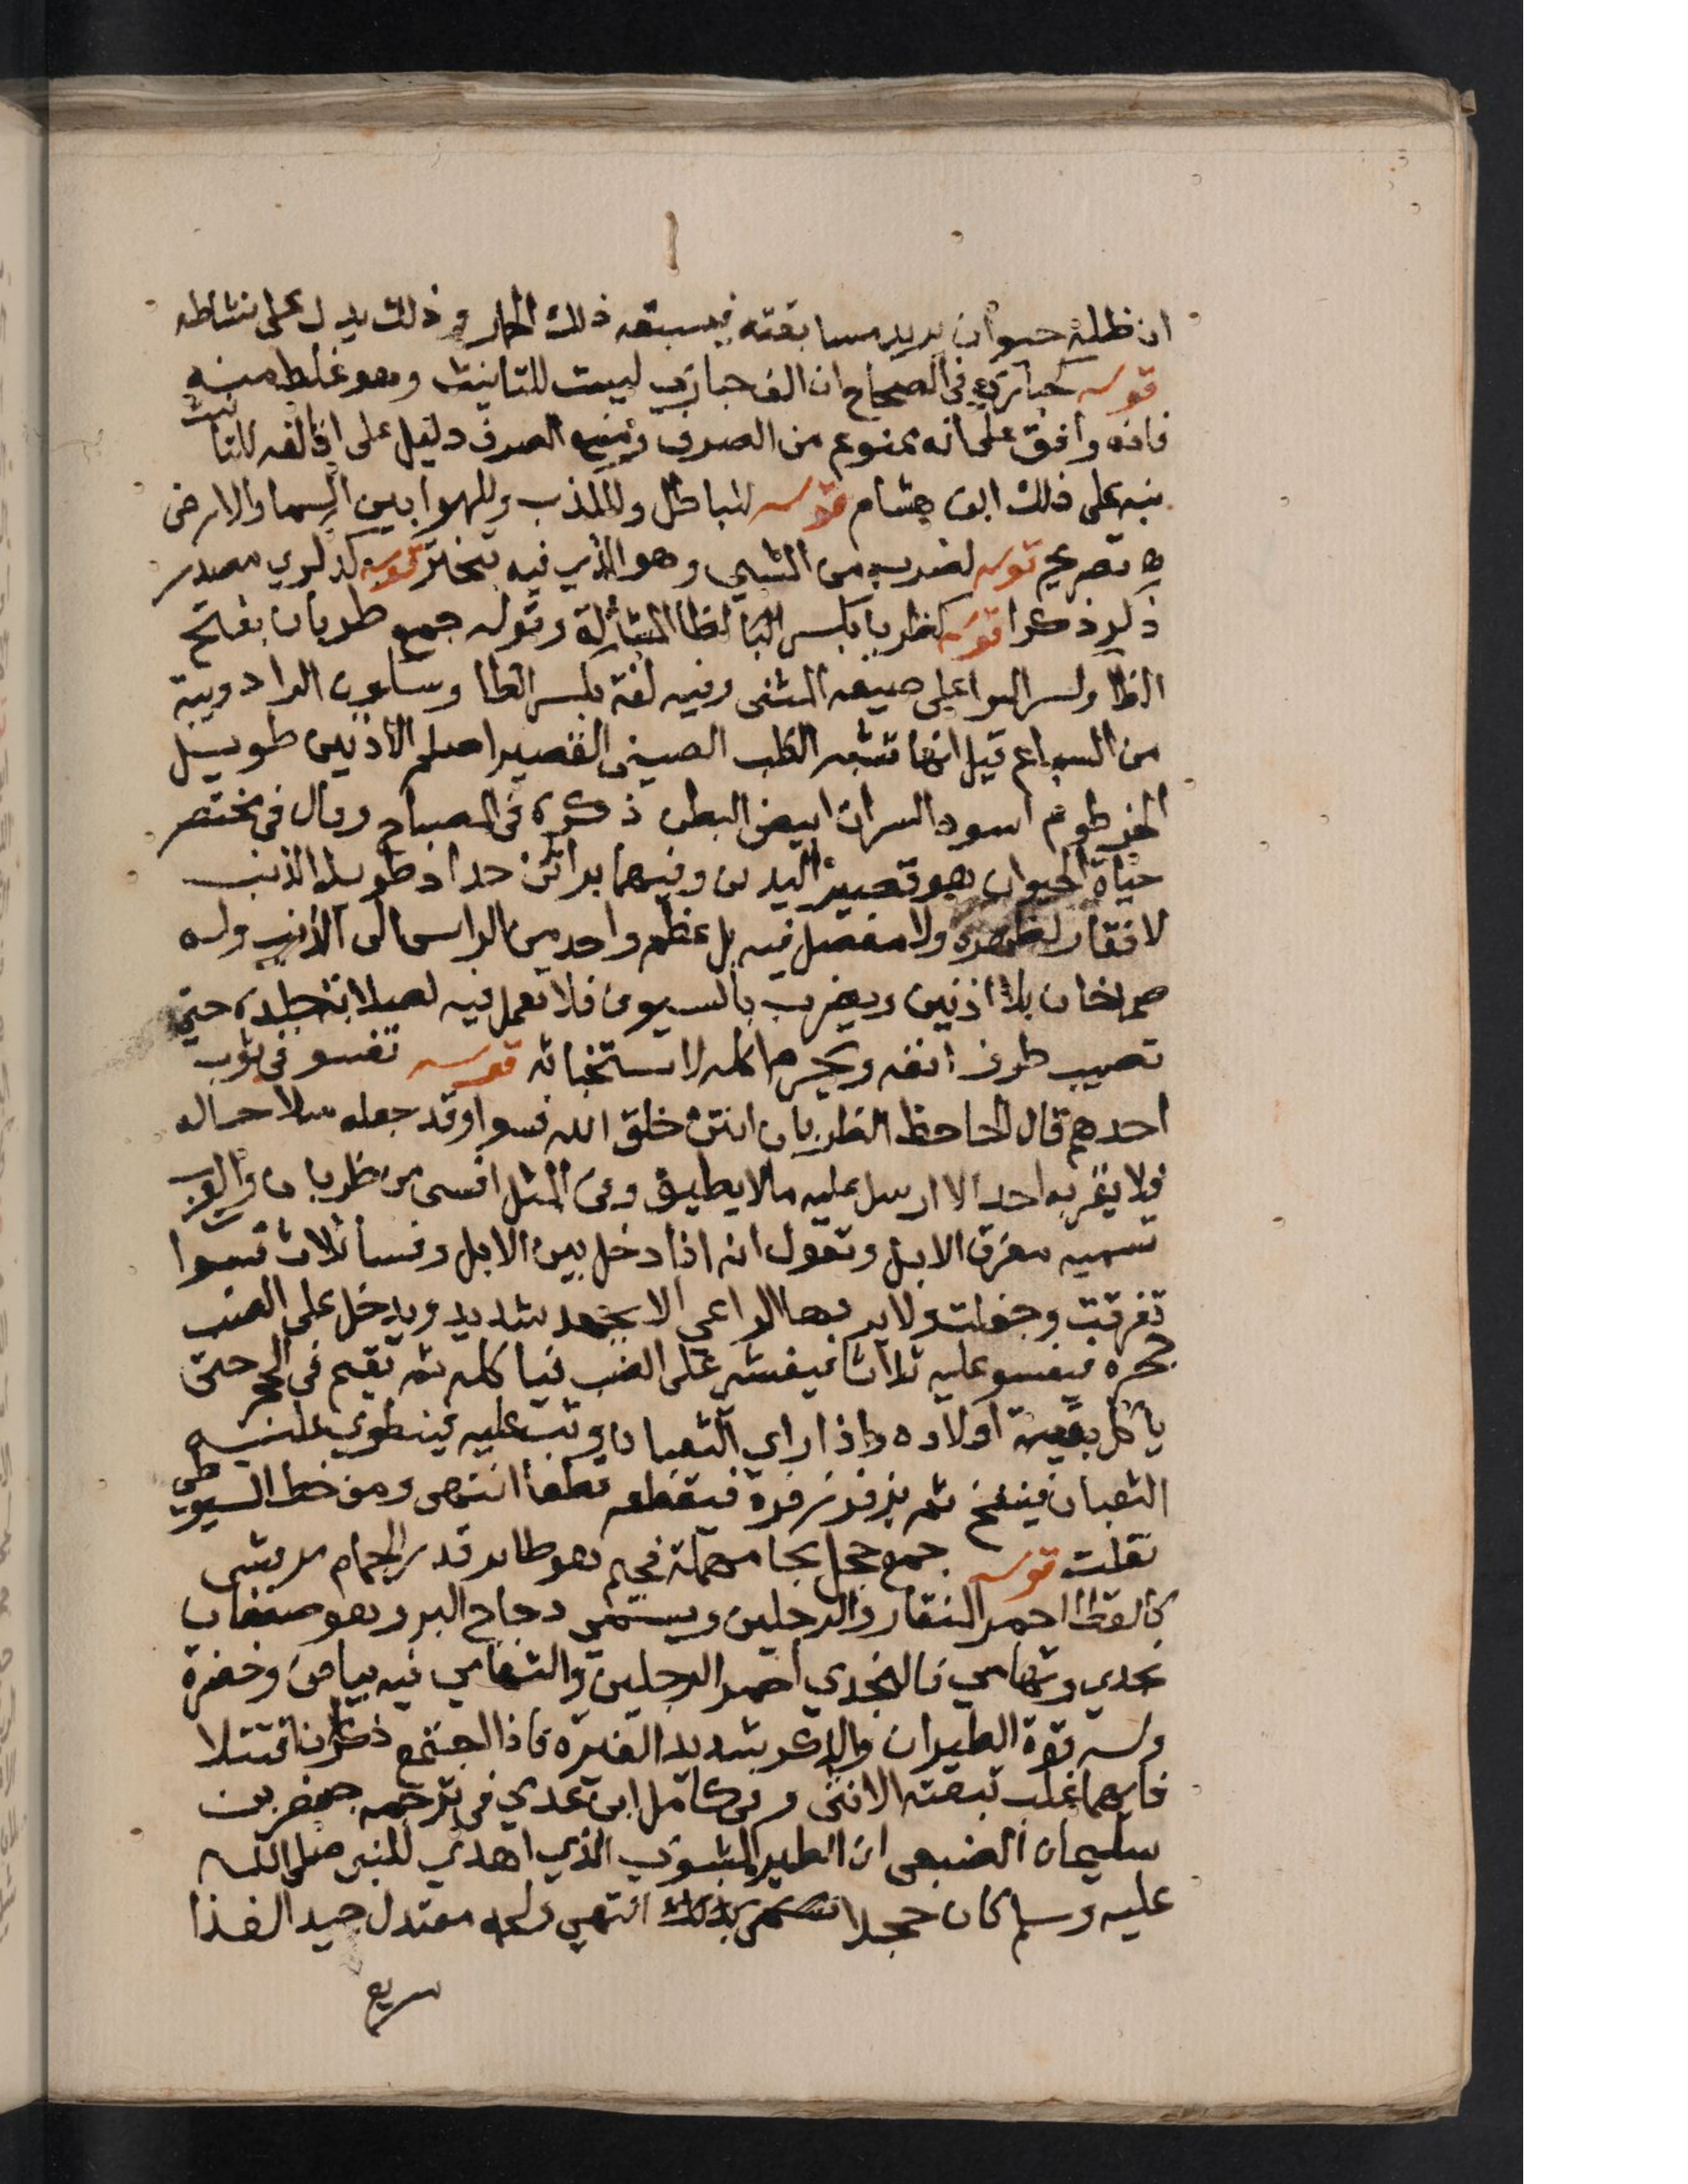 ان ظله حيوان يريد مسابقته فيسبقه ذلك الحمار وذلك يدل على نشاطه
قوله كحبارى في الصحاح ان الف حبارى ليست للتانيث وهو غلط منه
فانه وافق على انه ممنوع من الصرف ومنع الصرف دليل على ان الفه للتانيث
نبه على ذلك ابن هشام قوله للباطل وللكذب وللهوا بين السما والارض
ه تصريح قوله لضرب من المشي وهو الذي فيه تبختر قوله كذكري مصدر
ذكر ذكرا قوله كظربا بكسر البا لظا المشالة وقوله جمع ظربان بفتح
الظا وكسر الرا على صيغه المثنى وفيه لغة بكسر الظا وسكون الرا دويبة
من السباع قيل انها تشبه الكلب الصيني القصير اصلم الاذنين طويل
الخرطوم اسود السراة ابيض البطن ذكره في المصباح وقال في مختصر
حياة الحيوان هو قصير اليدين وفيهما براثن حداد طويل الذنب
لا فقار لظهره ولا مفصل فيه بل عظم واحد من الراس الى الذنب وله
صماخان بلا اذنين ويضرب بالسيوف فلا تعمل فيه لصلابة جلده حتى
تصيب طرف انفه ويحرم اكله لاستخباثه قوله تفسو في ثوب
احدهم قال الجاحظ الظربان انتن خلق الله فسوا وقد جعله سلاحا له
فلا يقربه احد الا ارسل عليه مالا يطيق وفي المثل افسى من ظربان والعرب
تسميه مفرق الابل وتقول انه اذا دخل بين الابل وفسا ثلاث فسوا
تفرقت وجفلت ولا يردها الراعي الا بجهد شديد ويدخل على الضب
جحره فيفسو عليه ثلاثا فيغشى على الضب فيا كله ثم يقيم في الجحر حتى
ياكل بقية اولاده واذا راي الثعبان وثب عليه فينطوي عليه
الثعبان فينفخ ثم يزفر زفرة فيقطعه قطعا انتهى ومن خط السيوطي
نقلت قوله جمع حجل بحا مهملة فجيم وهو طاير قدر الحمام مربشى
كالقطا احمر المنقار والرجلين ويسمى دجاج البر وهو صنفان
نجدي وتهامي فالنجدي احمر الرجلين والتهامي فيه بياض وخضرة
وله قوة الطيران والذكر شديد الغيرة فاذا اجتمع ذكران اقتتلا
فايهما غلب تبعته الانثى وفي كامل ابن عدي في ترجمه جعفر بن
سليمان الضبعى ان الطير المشوى الذي اهدي للنبي صلى الله
عليه وسلم كان حجلا انتهي ولحمه معتدل جيد الغذا
سريع